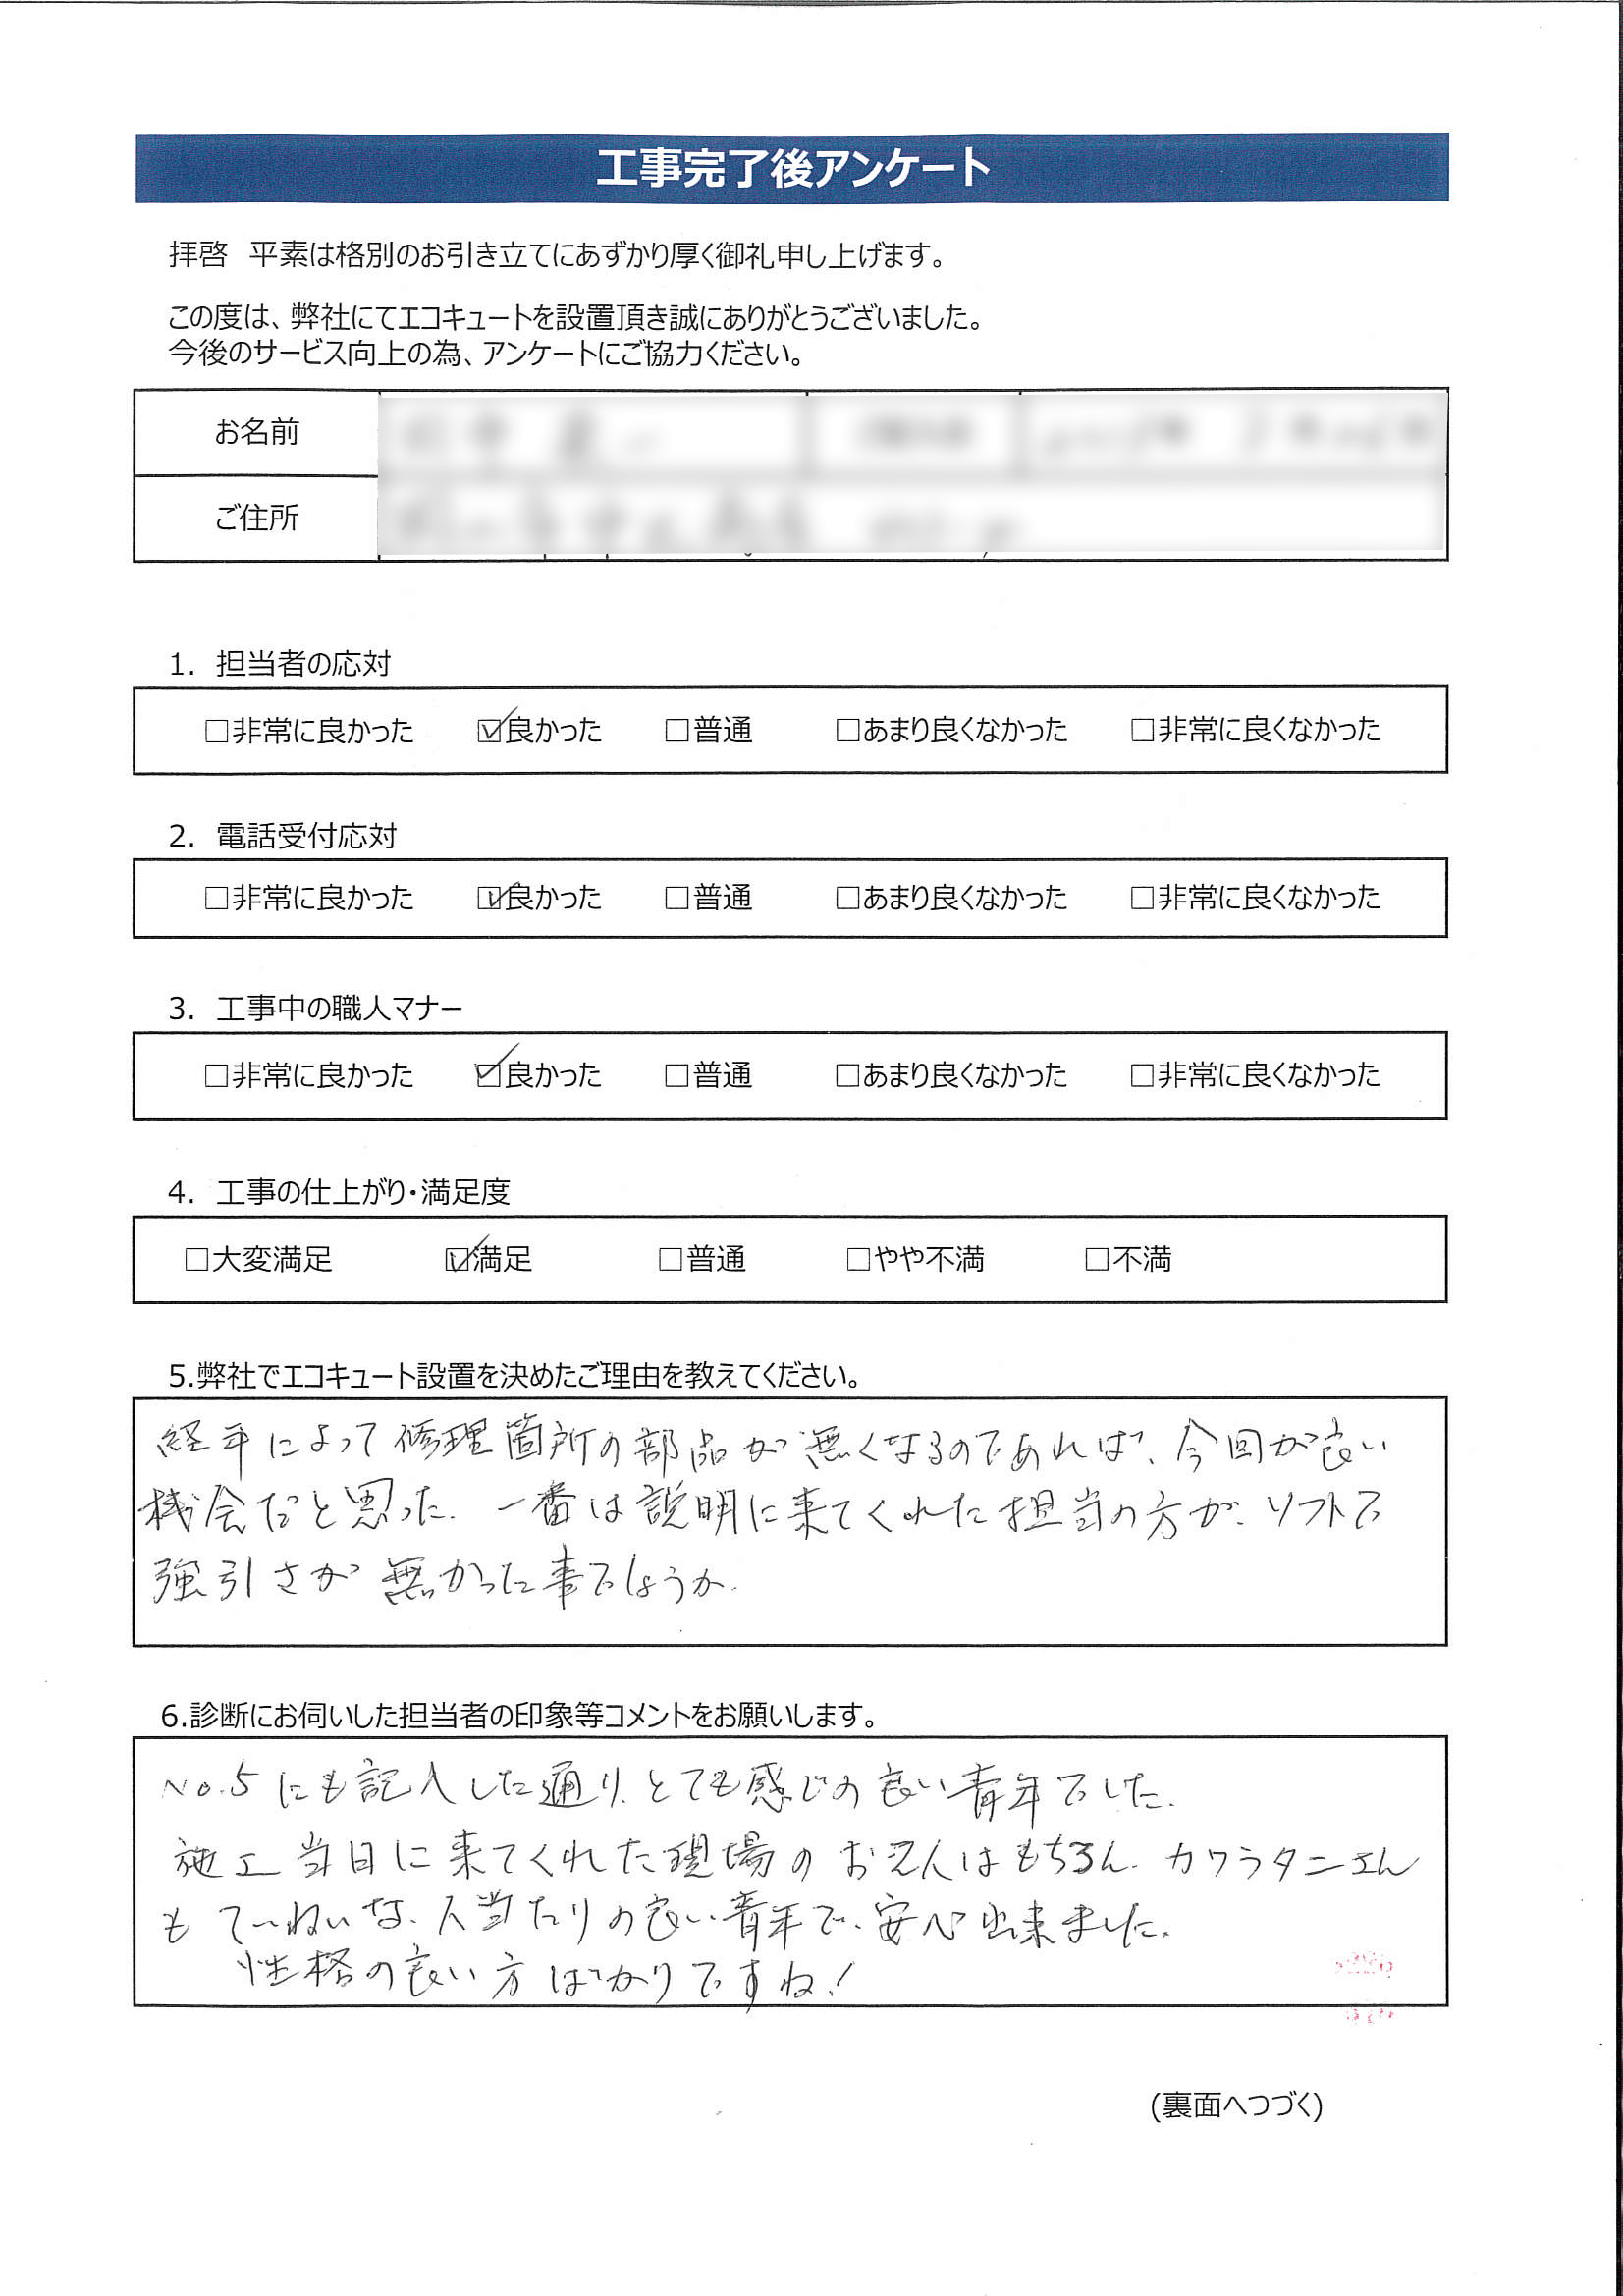 工事完了後アンケート
拝啓　平素は格別のお引き立てにあずかり厚く御礼申し上げます。
この度は、弊社にてエコキュートを設置頂き誠にありがとうございました。
今後のサービス向上の為、アンケートにご協力ください。
お名前
ご住所
1. 担当者の応対
□非常に良かった ☑良かった □普通 □あまり良くなかった □非常に良くなかった
2. 電話受付応対
□非常に良かった ☑良かった □普通 □あまり良くなかった □非常に良くなかった
3. 工事中の職人マナー
□非常に良かった ☑良かった □普通 □あまり良くなかった □非常に良くなかった
4. 工事の仕上がり・満足度
□大変満足 ☑満足 □普通 □やや不満 □不満
5.弊社でエコキュート設置を決めたご理由を教えてください。
経年によって修理箇所の部品が無くなるのであれば、今回が良い
機会だと思った. 一番は説明に来てくれた担当の方が、ソフトで
強引さが無かった事でしょうか.
6.診断にお伺いした担当者の印象等コメントをお願いします。
No.5にも記入した通り、とても感じの良い青年でした.
施工当日に来てくれた現場のお兄人はもちろん、カワラタニさん
もていねいな、人当たりの良い青年で、安心出来ました.
性格の良い方ばかりですね!
(裏面へつづく)